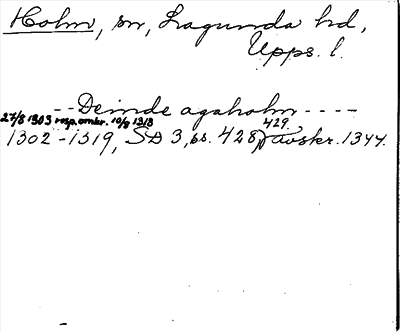 Holm, sn, Lagunda hd,
Upps. l.
-- Deinde agaholm ----
27/8 1303 resp. omkr. 10/9 1313
429.
1302-1319, SD 3, ss. 428, avskr. 1344.